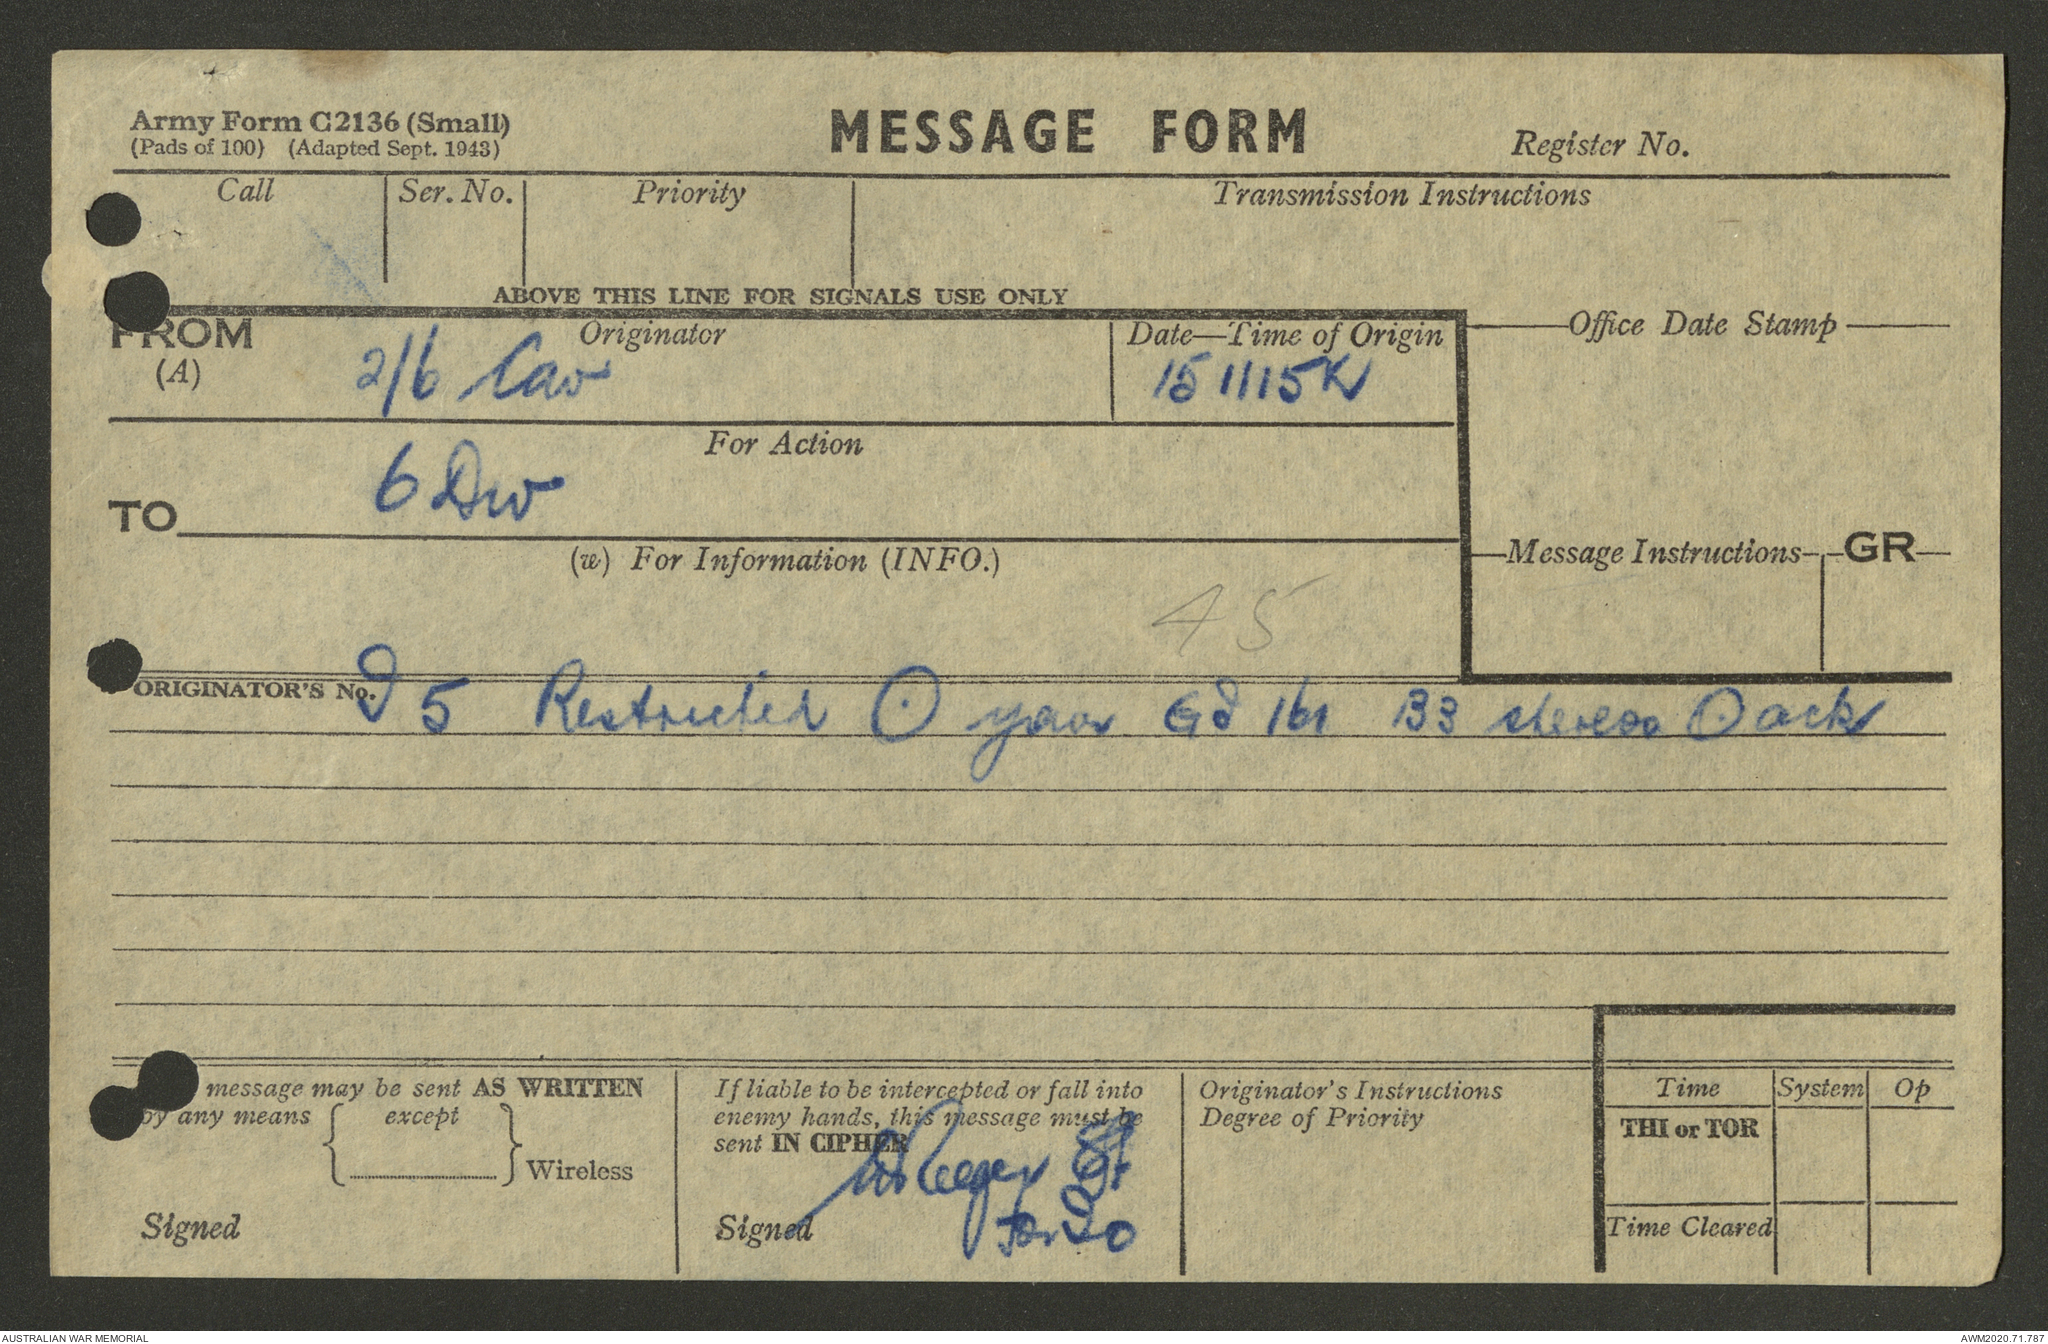 Army Form C2136 (Small)
(Pads of 100) (Adapted Sept. 1943)
MESSAGE FORM
Register No.
Call
Ser. No.
Priority
Transmission Instructions
ABOVE THIS LINE FOR SIGNALS USE ONLY
FROM
(A)
Originator
2/6 Cav
Date—Time of Origin
151115K
Office Date Stamp
For Action
TO
6 Div
(w) For Information (INFO.)
Message Instructions
GR
45
ORIGINATOR'S No.
I 5 Restricted ⊙ your GI 161 B3 stereos ⊙ ack
message may be sent AS WRITTEN
by any means { except
} Wireless
Signed
If liable to be intercepted or fall into
enemy hands, this message must be
sent IN CIPHER
Signed
for IO
Originator's Instructions
Degree of Priority
Time
System
Op
THI or TOR
Time Cleared
AUSTRALIAN WAR MEMORIAL
AWM2020.71.787